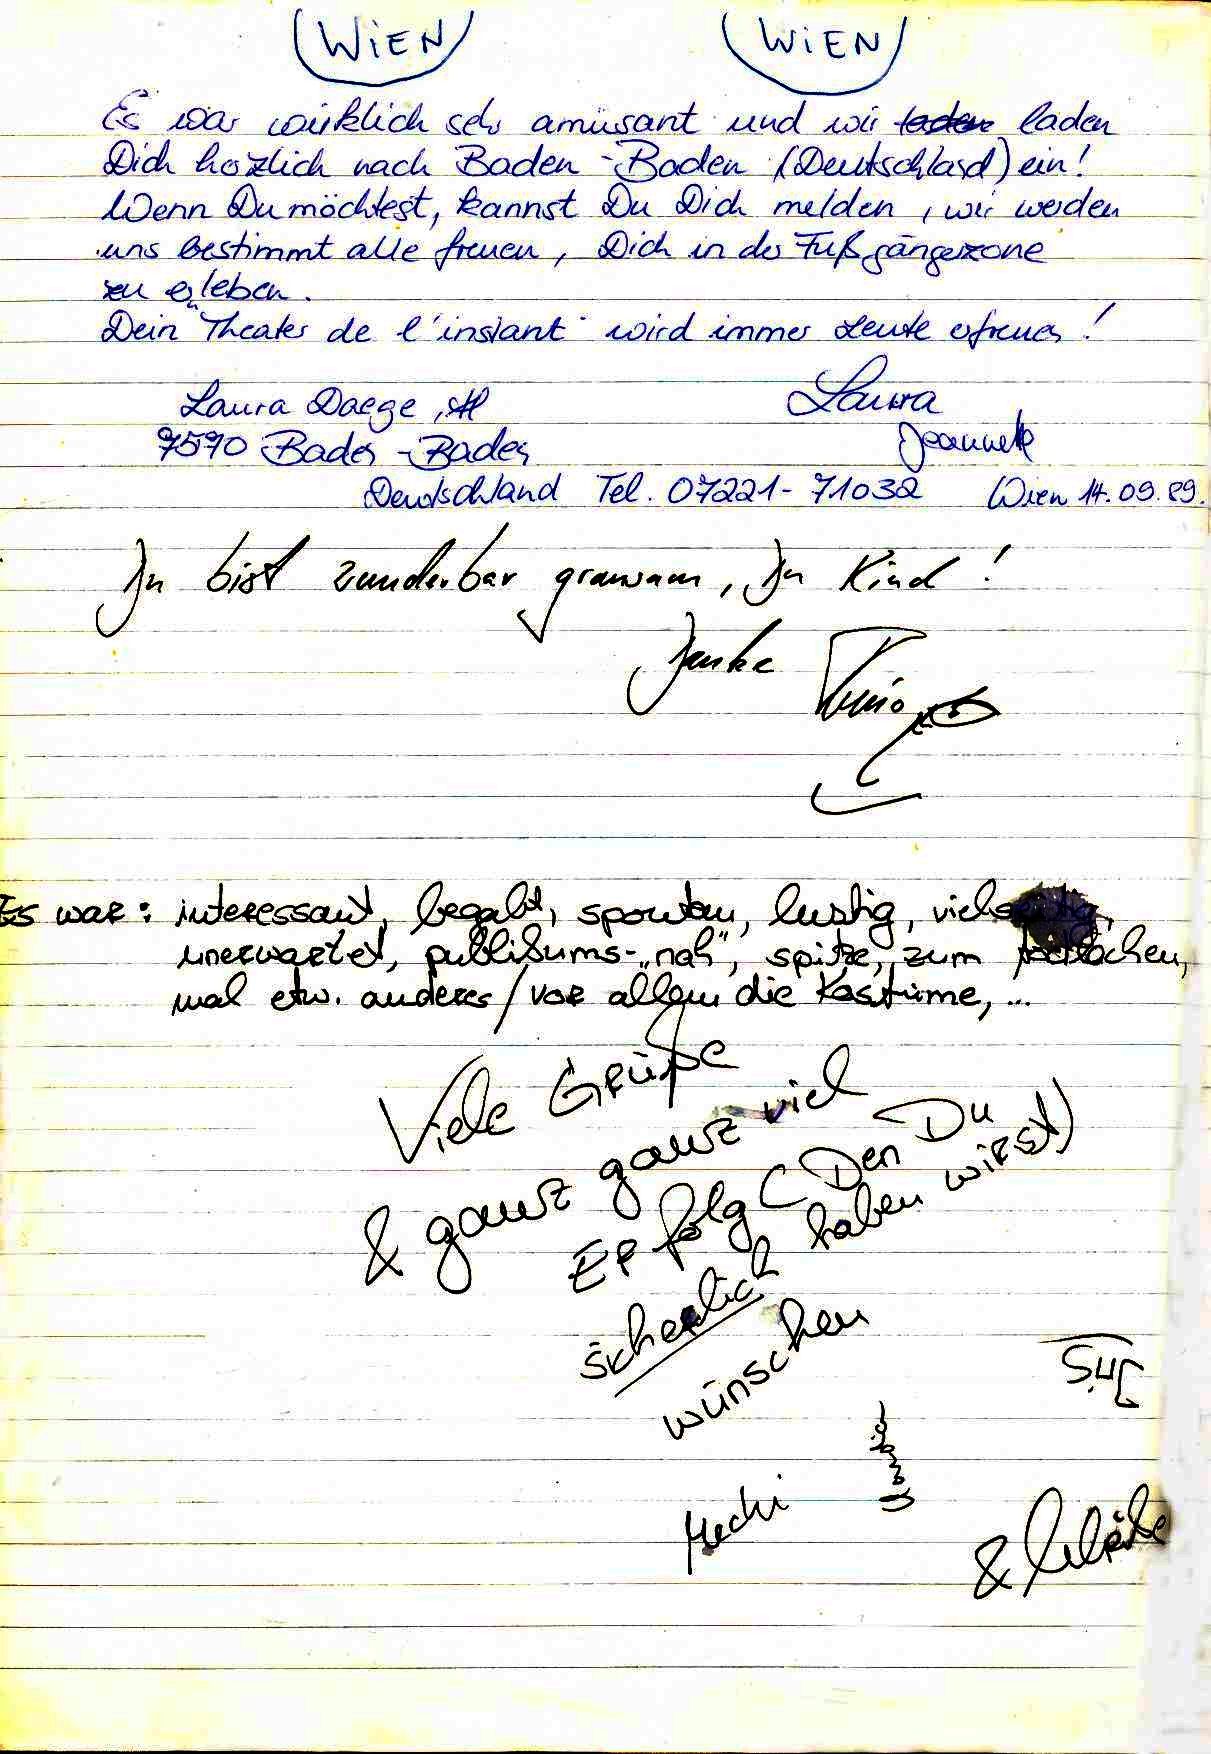 WiEN WiEN
Es war wirklich sehr amüsant und wir laden laden
Dich herzlich nach Baden-Baden (Deutschland) ein!
Wenn Du möchtest, kannst Du Dich melden, wir werden
uns bestimmt alle freuen, Dich in der Fußgängerzone
zu erleben.
Dein "Theater de l'instant" wird immer Leute erfreuen!
Laura Daege, Laura
7570 Baden-Baden Jeannette
Deutschland Tel. 07221-71032 Wien 14.09.89.
Du bist wunderbar grausam, Du Kind!
Danke
Es war: interessant, begabt, spontan, lustig, vielseitig,
unerwartet, publikums-„nah", spitze, zum
mal etw. anderes/vor allem die Kostüme, ...
Viele Grüße
& ganz ganz viel
Erfolg (Den Du
sicherlich haben wirst)
wünschen
Jris
Mechi
&